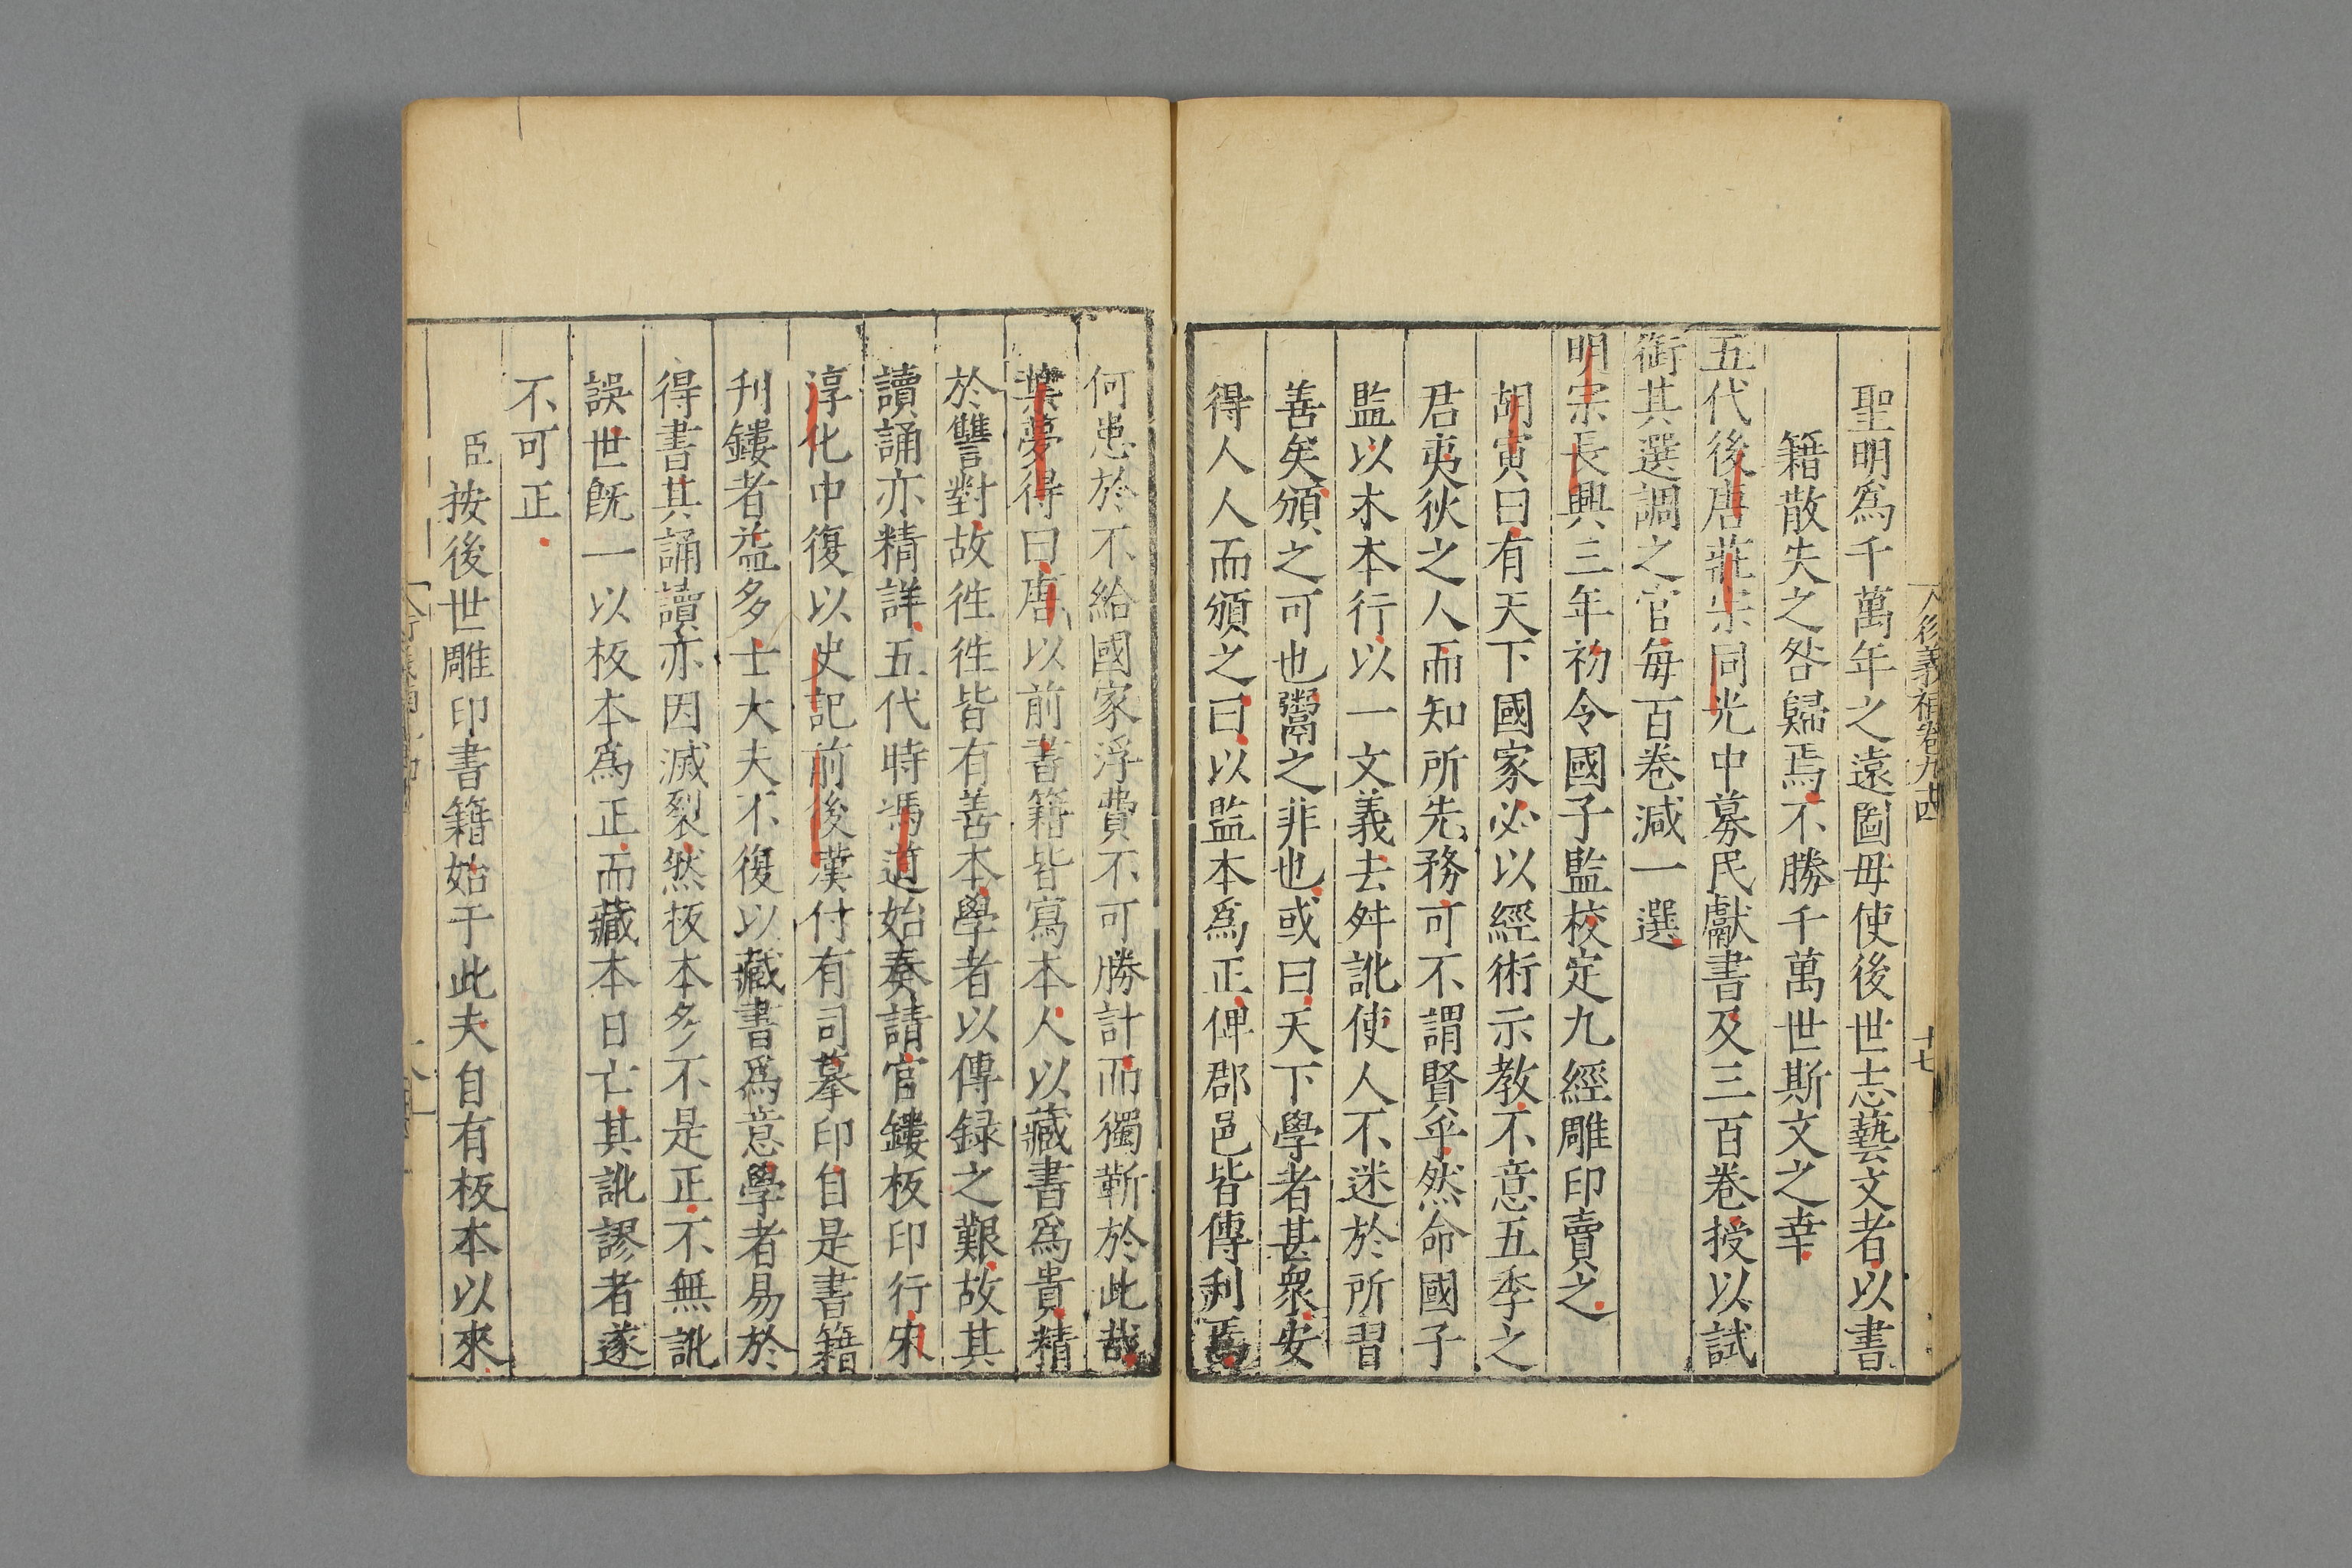 聖明爲千萬年之遠圖毋使後世志藝文者以書
籍散失之咎歸焉不勝千萬世斯文之幸
五代後唐莊宗同光中募民獻書及三百卷授以試
銜其選調之官每百卷減一選
明宗長興三年初令國子監校定九經雕印賣之
胡寅曰有天下國家必以經術示教不意五季之
君夷狄之人而知所先務可不謂賢乎然命國子
監以木本行以一文義去舛訛使人不迷於所習
善矣頒之可也鬻之非也或曰天下學者甚衆安
得人人而頒之曰以監本爲正俾郡邑皆傳刋焉
何患於不給國家浮費不可勝計而獨靳於此哉
葉夢得曰唐以前書籍皆寫本人以藏書爲貴精
於讐對故徃徃皆有善本學者以傳録之艱故其
讀誦亦精詳五代時馮道始奏請官鏤板印行宋
淳化中復以史記前後漢付有司摹印自是書籍
刋鏤者益多士大夫不復以藏書爲意學者易於
得書其誦讀亦因滅裂然板本多不是正不無訛
誤世旣一以板本爲正而藏本日亡其訛謬者遂
不可正
臣按後世雕印書籍始于此夫自有板本以來